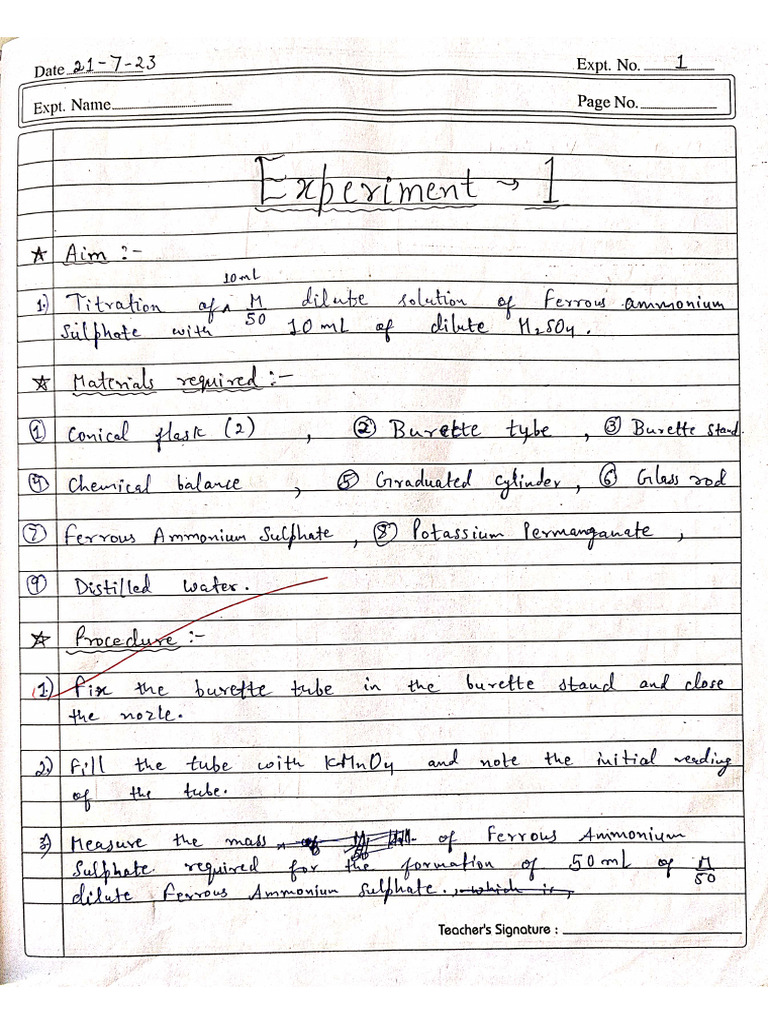 Date 21-7-23 Expt. No. 1
Expt. Name Page No.
Experiment → 1
☆ Aim :-
10 mL
1) Titration of ^ M/50 dilute solution of Ferrous ammonium
Sulphate with 10 mL of dilute H₂SO₄.
☆ Materials required :-
① Conical flask (2) , ② Burette tybe , ③ Burette stand.
④ Chemical balance , ⑤ Graduated cylinder, ⑥ Glass rod
⑦ Ferrous Ammonium Sulphate , ⑧ Potassium Permanganate ,
⑨ Distilled water.
☆ Procedure :-
1) Fix the burette tube in the burette stand and close
the nozle.
2) Fill the tube with KMnO₄ and note the initial reading
of the tube.
3) Measure the mass of Ferrous Ammonium
Sulphate required for the formation of 50 mL of M/50
dilute Ferrous Ammonium Sulphate. , which is,
Teacher's Signature :